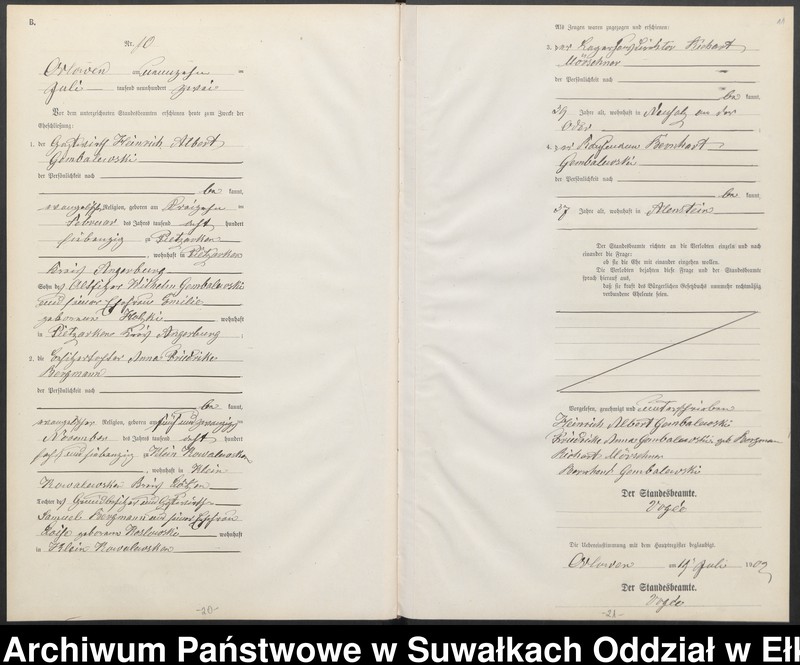 B.
Nr. 10
Orlowen am neunzehn ten
Juli tausend neunhundert zwei
Vor dem unterzeichneten Standesbeamten erschienen heute zum Zwecke der
Eheschließung:
1. der Gastwirth Heinrich Albert
Gembalewski
der Persönlichkeit nach
be kannt,
evangelischer Religion, geboren am Dreizehn ten
Februar des Jahres tausend acht hundert
siebenzig zu Pietzarken
, wohnhaft in Pietzarken
Kreis Angerburg
Sohn des Altsitzer Wilhelm Gembalewski
und seiner Ehefrau Emilie
geborenen wohnhaft
in Pietzarken Kreis Angerburg ;
2. die Besitzertochter Anna Friedricke
Bergmann
der Persönlichkeit nach
be kannt,
evangelischer Religion, geboren am fünf und zwanzig ten
November des Jahres tausend acht hundert
sechs und siebenzig zu Klein Kowalewsken
, wohnhaft in Klein
Kowalewsken Kreis Lötzen
Tochter des Grundbesitzer und
Samuel Bergmann und seiner Ehefrau
geborenen Koslowski wohnhaft
in Klein Kowalewsken
-20-
Als Zeugen waren zugezogen und erschienen:
3. der Richart
Mörschner
der Persönlichkeit nach
be kannt,
39 Jahre alt, wohnhaft in Neusalz an der
Oder ;
4. der Kaufmann Bernhart
Gembalewski
der Persönlichkeit nach
be kannt,
37 Jahre alt, wohnhaft in Alenstein
Der Standesbeamte richtete an die Verlobten einzeln und nach
einander die Frage:
ob sie die Ehe mit einander eingehen wollen.
Die Verlobten bejahten diese Frage und der Standesbeamte
sprach hierauf aus,
daß sie kraft des Bürgerlichen Gesetzbuchs nunmehr rechtmäßig
verbundene Eheleute seien.
Vorgelesen, genehmigt und unterschrieben
Heinrich Albert Gembalewski
Friedricke Anna Gembalewski geb Bergman
Richart Mörschner
Bernhard Gembalewski
Der Standesbeamte.
Die Uebereinstimmung mit dem Hauptregister beglaubigt.
Orlowen am 19 Juli 1902
Der Standesbeamte.
-21-
Archiwum Państwowe w Suwałkach Oddział w Ełk